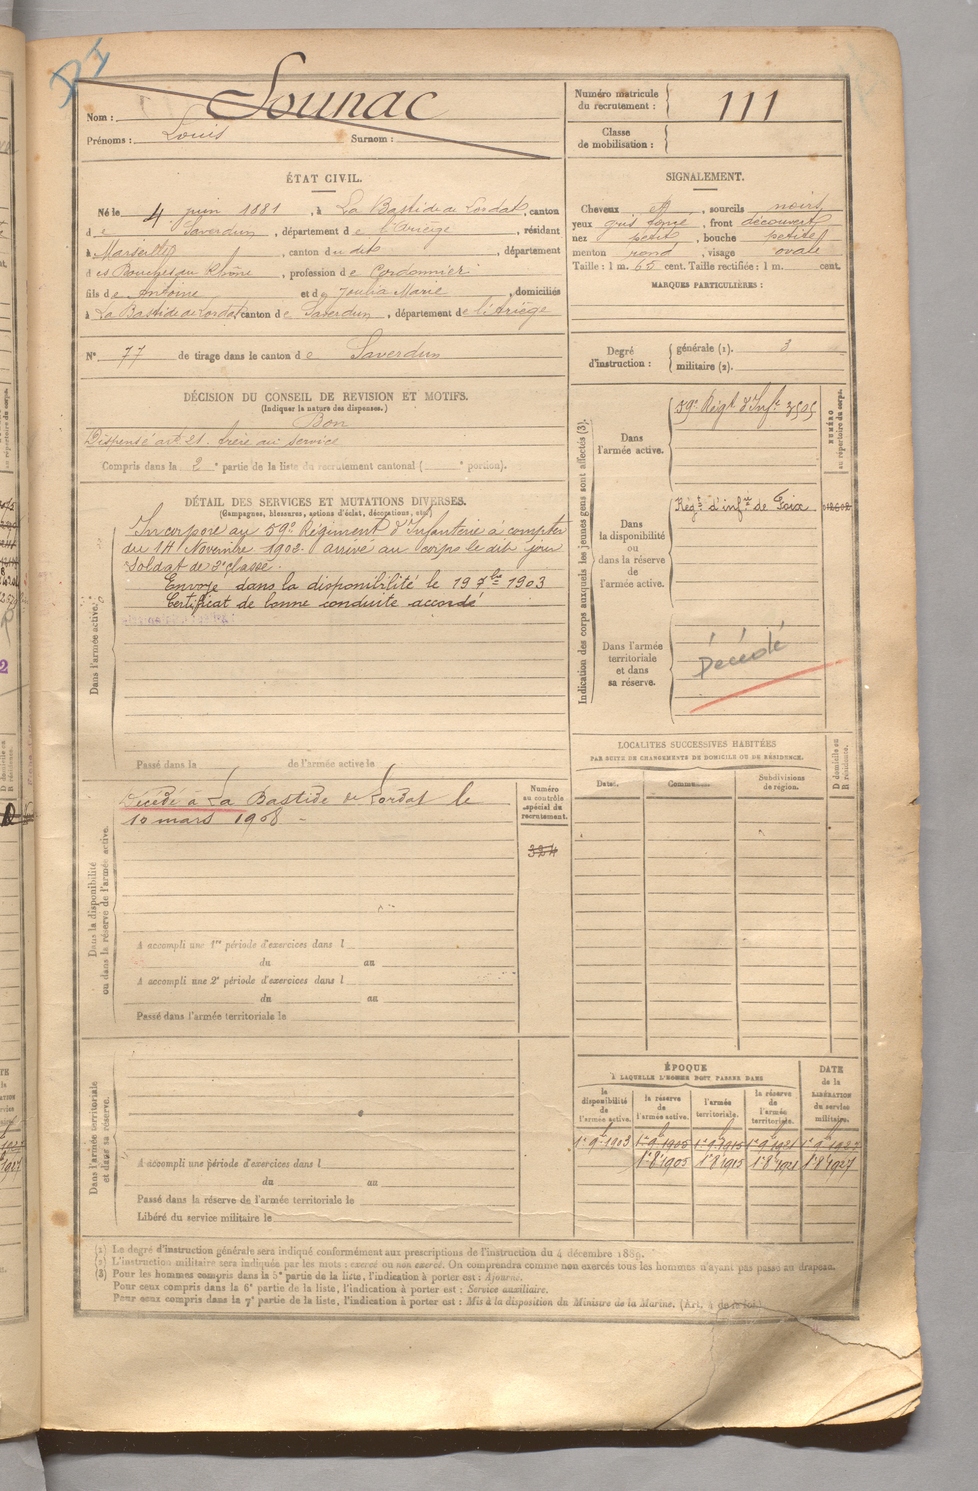 Nom : Sounac
Prénoms : Louis Surnom :
Numéro matricule du recrutement : 111
Classe de mobilisation :
ÉTAT CIVIL.
Né le 4 juin 1881, à La Bastide de Lordat, canton
de Saverdun, département de l'Ariège, résidant
à Marseille, canton du dit, département
des Bouches du Rhône, profession de Cordonnier
fils de Antoine et de Joulia Marie, domiciliés
à La Bastide de Lordat canton de Saverdun, département de l'Ariège
N° 77 de tirage dans le canton de Saverdun
SIGNALEMENT.
Cheveux, sourcils noirs,
yeux gris foncé, front découvert
nez petit, bouche petite
menton rond, visage ovale
Taille : 1 m. 65 cent. Taille rectifiée : 1 m. cent.
MARQUES PARTICULIÈRES :
Degré d'instruction : générale (1). 3
militaire (2).
DÉCISION DU CONSEIL DE REVISION ET MOTIFS.
(Indiquer la nature des dispenses.)
Bon
Dispensé art 21. frère au service
Compris dans la 2e partie de la liste du recrutement cantonal ( e portion).
DÉTAIL DES SERVICES ET MUTATIONS DIVERSES.
(Campagnes, blessures, actions d'éclat, décorations, etc.)
Dans l'armée active.
Incorporé au 59e Régiment d'Infanterie à compter
du 14 Novembre 1902. arrivé au corps le dit jour
Soldat de 2e classe.
Envoyé dans la disponibilité le 19 7bre 1903
Certificat de bonne conduite accordé
Passé dans la de l'armée active le
Indication des corps auxquels les jeunes gens sont affectés (3).
NUMÉRO au répertoire du corps.
Dans l'armée active.
59e Régt d'Infie
Dans la disponibilité ou dans la réserve de l'armée active.
Régt d'infie de Foix
Dans l'armée territoriale et dans sa réserve.
Décédé
LOCALITÉS SUCCESSIVES HABITÉES
PAR SUITE DE CHANGEMENTS DE DOMICILE OU DE RÉSIDENCE.
Dates. Communes. Subdivisions de région. D domicile ou R résidence.
Dans la disponibilité ou dans la réserve de l'armée active.
Décédé à La Bastide de Lordat le
10 mars 1908 -
Numéro au contrôle spécial du recrutement.
324
A accompli une 1re période d'exercices dans l
du au
A accompli une 2e période d'exercices dans l
du au
Passé dans l'armée territoriale le
Dans l'armée territoriale et dans sa réserve.
A accompli une période d'exercices dans l
du au
Passé dans la réserve de l'armée territoriale le
Libéré du service militaire le
ÉPOQUE
À LAQUELLE L'HOMME DOIT PASSER DANS
DATE de la LIBÉRATION du service militaire.
la disponibilité de l'armée active. la réserve de l'armée active. l'armée territoriale. la réserve de l'armée territoriale.
1r 9e 1903 1r 9e 1905 1r 9e 1915 1r 9e 1921 1r 9e 1927
1r 8e 1905 1r 8e 1915 1r 8e 1921 1r 8e 1927
(1) Le degré d'instruction générale sera indiqué conformément aux prescriptions de l'instruction du 4 décembre 1889.
(2) L'instruction militaire sera indiquée par les mots : exercé ou non exercé. On comprendra comme non exercés tous les hommes n'ayant pas passé au drapeau.
(3) Pour les hommes compris dans la 5e partie de la liste, l'indication à porter est : Ajourné.
Pour ceux compris dans la 6e partie de la liste, l'indication à porter est : Service auxiliaire.
Pour ceux compris dans la 7e partie de la liste, l'indication à porter est : Mis à la disposition du Ministre de la Marine. (Art. 4 de la loi.)